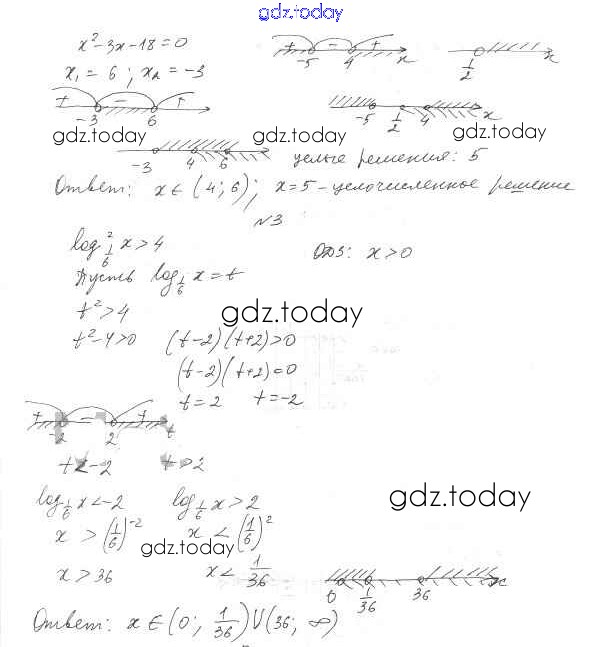 gdz.today
x²-3x-18=0
x₁=6; x₂=-3
+ - +
-3 6
+ - +
-5 4 x
1/2 x
-5 1/2 4 x
gdz.today gdz.today gdz.today
-3 4 6 x целые решения: 5
Ответ: x∈(4; 6); x=5-целочисленное решение
№3
log²_{1/6} x>4 ОДЗ: x>0
Пусть log_{1/6} x=t
t²>4 gdz.today
t²-4>0 (t-2)(t+2)>0
(t-2)(t+2)=0
t=2 t=-2
+ - +
-2 2 t
t<-2 t>2
log_{1/6} x<-2 log_{1/6} x>2 gdz.today
x>(1/6)^{-2} x<(1/6)²
gdz.today
x>36 x<1/36
0 1/36 36 x
Ответ: x∈(0; 1/36)U(36; ∞)